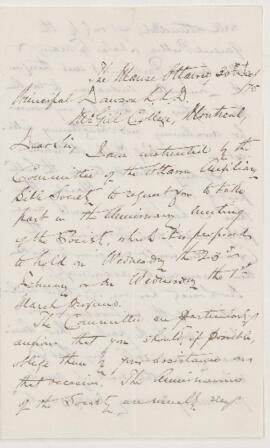 The Manse Ottawa 30th Decr
Principal Dawson L.L.D.
McGill College, Montreal,
Dear Sir, I am instructed by the
Committee of the Ottawa Auxiliary
Bible Society to request you to take
part in the Anniversary Meeting
of the Society, which it is proposed
to hold on Wednesday the 23rd
February or on Wednesday the 1st
March proximo.
The Committee are particularly
anxious that you should if possible,
oblige them by your assistance on
that occasion. The Anniversaries
of the Society are usually